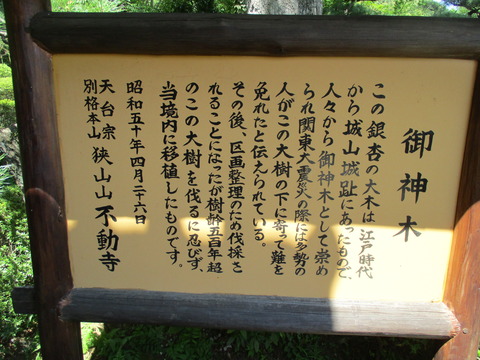 御神木
この銀杏の大木は、江戸時代
から城山城趾にあったもので、
人々から御神木として崇め
られ関東大震災の際には多勢の
人がこの大樹の下に寄て難を
免れたと伝えられている。
その後、区画整理のため伐採さ
れることになったが樹齢五百年超
のこの大樹を伐るに忍びず、
当境内に移植したものです。
昭和五十年四月二十六日
天台宗
別格本山 狭山山不動寺